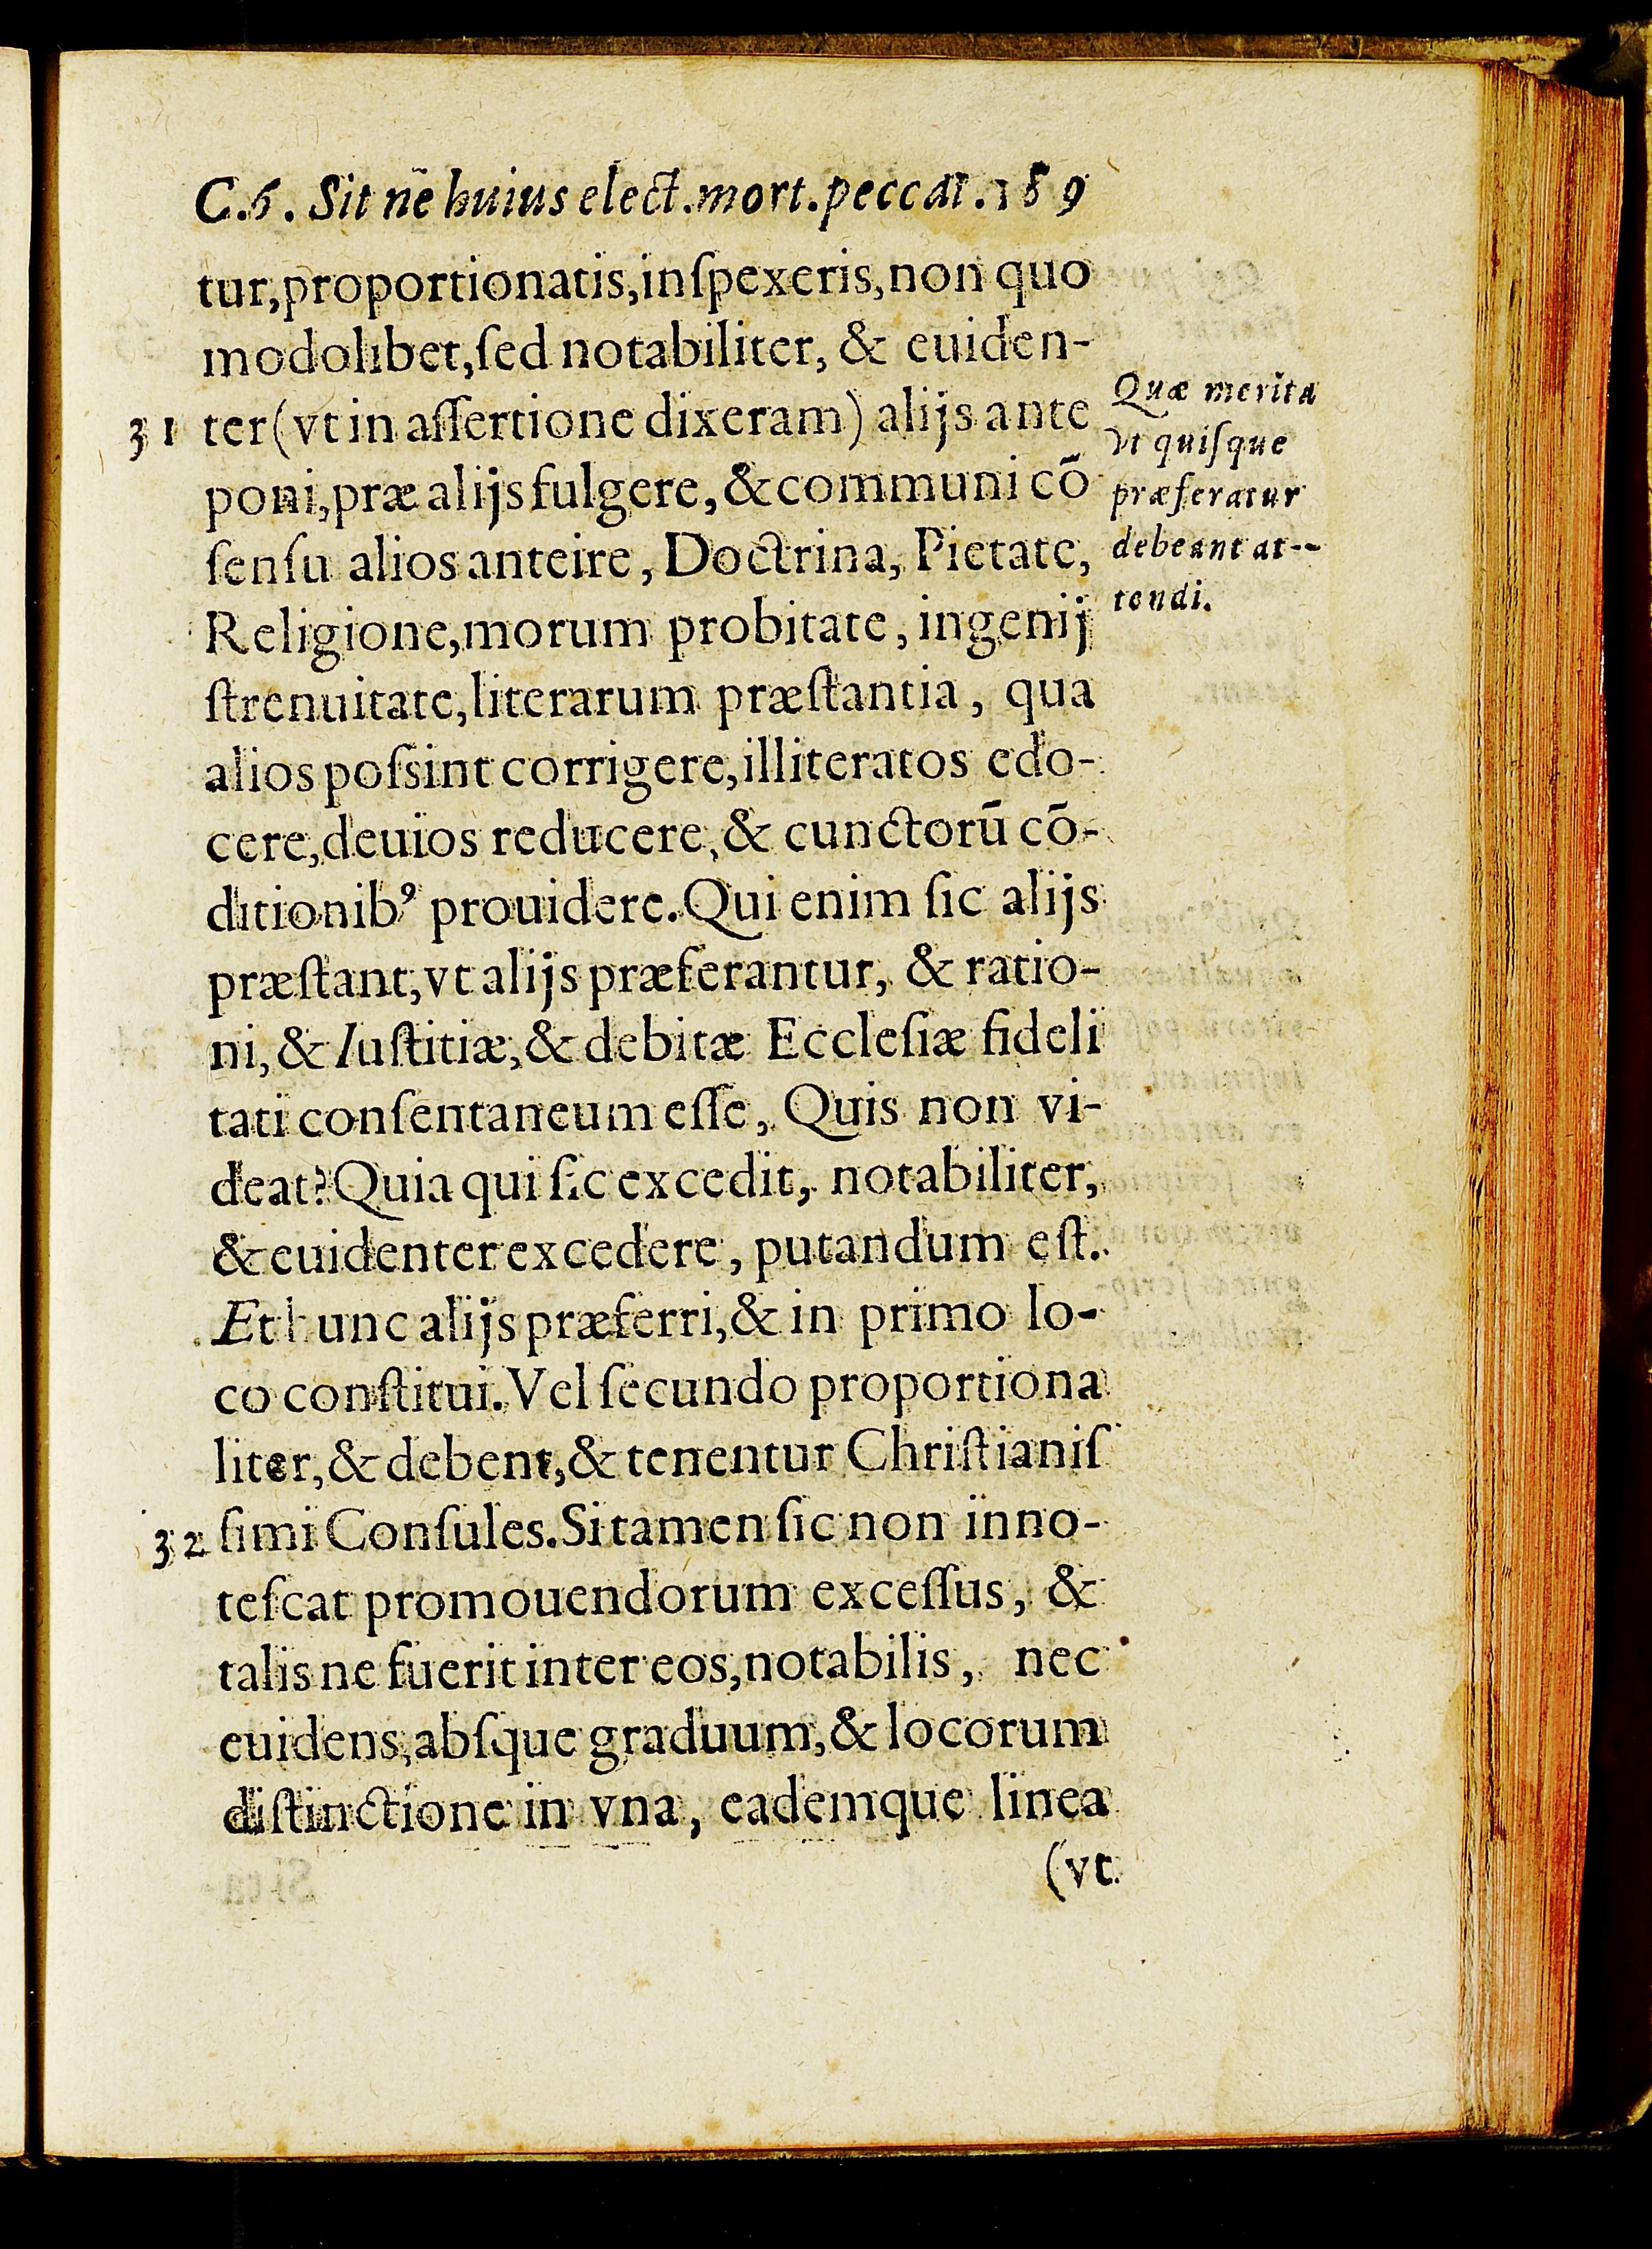 C.6. Sit nē huius elect.mort.peccat.189
tur,proportionatis,inſpexeris,non quo
modolibet,ſed notabiliter, & euiden-
31 ter(vt in aſſertione dixeram) alijs ante
poni,præ alijs fulgere, & communi cō
ſenſu alios anteire, Doctrina, Pietate,
Religione,morum probitate, ingenij
ſtrenuitate,literarum præſtantia, qua
alios poſsint corrigere,illiteratos edo-
cere,deuios reducere,& cunctorū cō-
ditionibꝰ prouidere.Qui enim ſic alijs
præſtant,vt alijs præferantur, & ratio-
ni,& Iuſtitiæ,& debitæ Eccleſiæ fideli
tati conſentaneum eſſe, Quis non vi-
deat?Quia qui ſic excedit, notabiliter,
& euidenter excedere, putandum eſt.
Et hunc alijs præferri,& in primo lo-
co conſtitui.Vel ſecundo proportiona
liter,& debent,& tenentur Chriſtianiſ
32 ſimi Conſules.Si tamen ſic non inno-
teſcat promouendorum exceſſus, &
talis ne fuerit inter eos,notabilis, nec
euidens,abſque graduum,& locorum
diſtinctione in vna, eademque linea
(vt
Quæ merita
vt quiſque
præferatur
debeant at--
tendi.